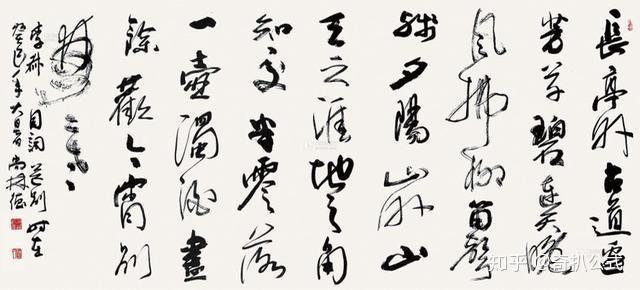 長亭外古道邊
芳草碧連天晚
風拂柳笛聲
殘夕陽山外山
天之涯地之角
知交半零落
一壺濁酒盡
餘歡今宵別
夢寒
李叔同詞送別時在
癸巳年大暑
知乎 @奇扒公式